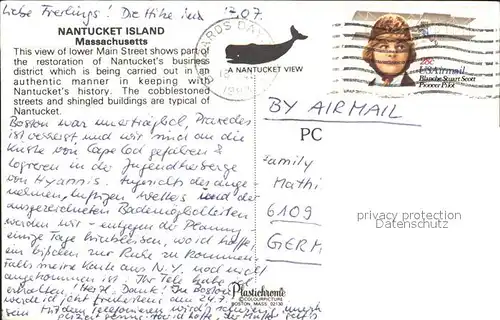 Liebe Freilings! Die Hitze in
17.07.
NANTUCKET ISLAND
Massachusetts
This view of lower Main Street shows part
of the restoration of Nantucket's business
district which is being carried out in an
authentic manner in keeping with
Nantucket's history. The cobblestoned
streets and shingled buildings are typical of
Nantucket.
A NANTUCKET VIEW
28c
USAirmail
Blanche Stuart Scott
Pioneer Pilot
BY AIRMAIL
PC
Boston war unerträglich,
ist verreist, und wir sind an die
Küste von Cape Cod gefahren &
logieren in der Jugendherberge
von Hyannis. Angesichts des ange-
nehmen, luftigen Wetters und der
ausgezeichneten Bademöglichkeiten
werden wir - entgegen der Planung
einige Tage hierbleiben, wo ich hoffe,
ein bißchen zur Ruhe zu kommen.
Falls meine Karte aus N.Y. noch nicht
angekommen ist: Ihr Tele habe ich
erhalten! Herzl. Dank! In Boston
werde ich jetzt frühestens am 24.7.
sein. Mit dem Telefonieren wird's schwierig
family
Mathi
6109
GERM
privacy protection
Datenschutz
Plastichrome
COLOURPICTURE
BOSTON, MASS. 02130